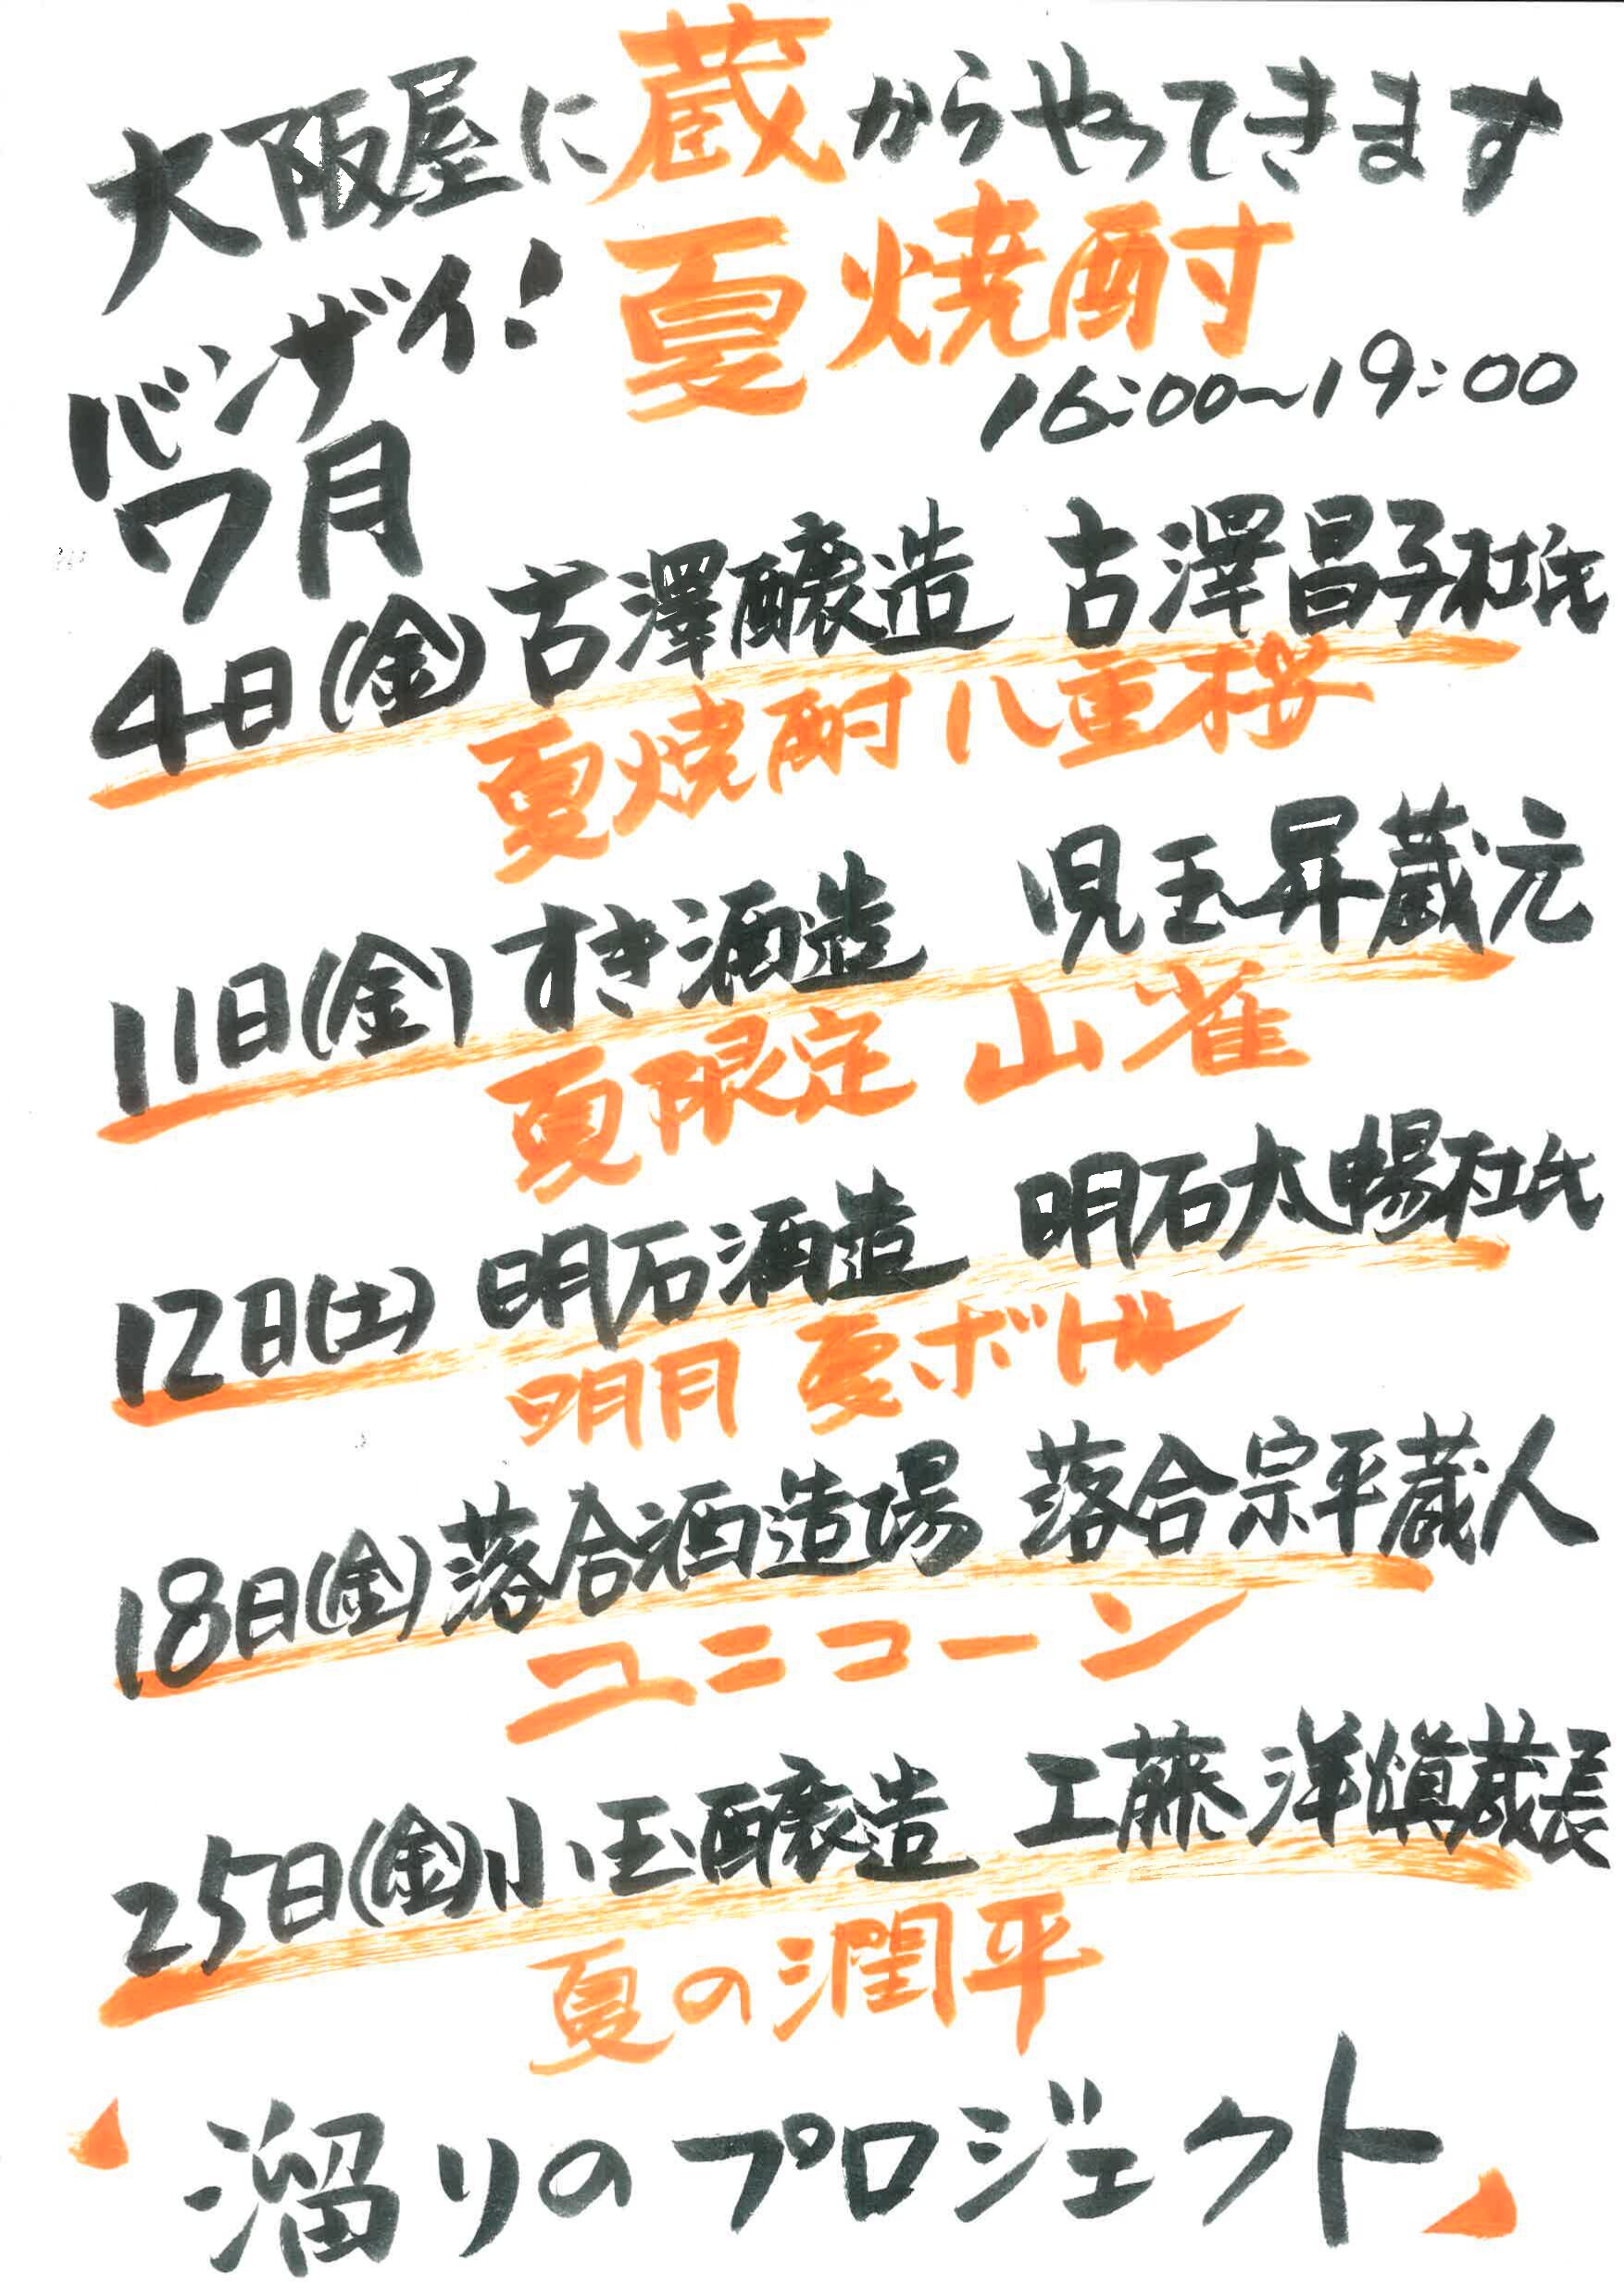 大阪屋に蔵からやってきます
バンザイ!夏焼酎
16:00〜19:00
7月
4日(金)古澤醸造 古澤昌子杜氏
夏焼酎八重桜
11日(金)すき酒造 児玉昇蔵元
夏限定 山雀
12日(土)明石酒造 明石太暢杜氏
明月 夏ボトル
18日(金)落合酒造場 落合宗平蔵人
ユニコーン
25日(金)小玉醸造 工藤洋愼蔵長
夏の潤平
溜りのプロジェクト